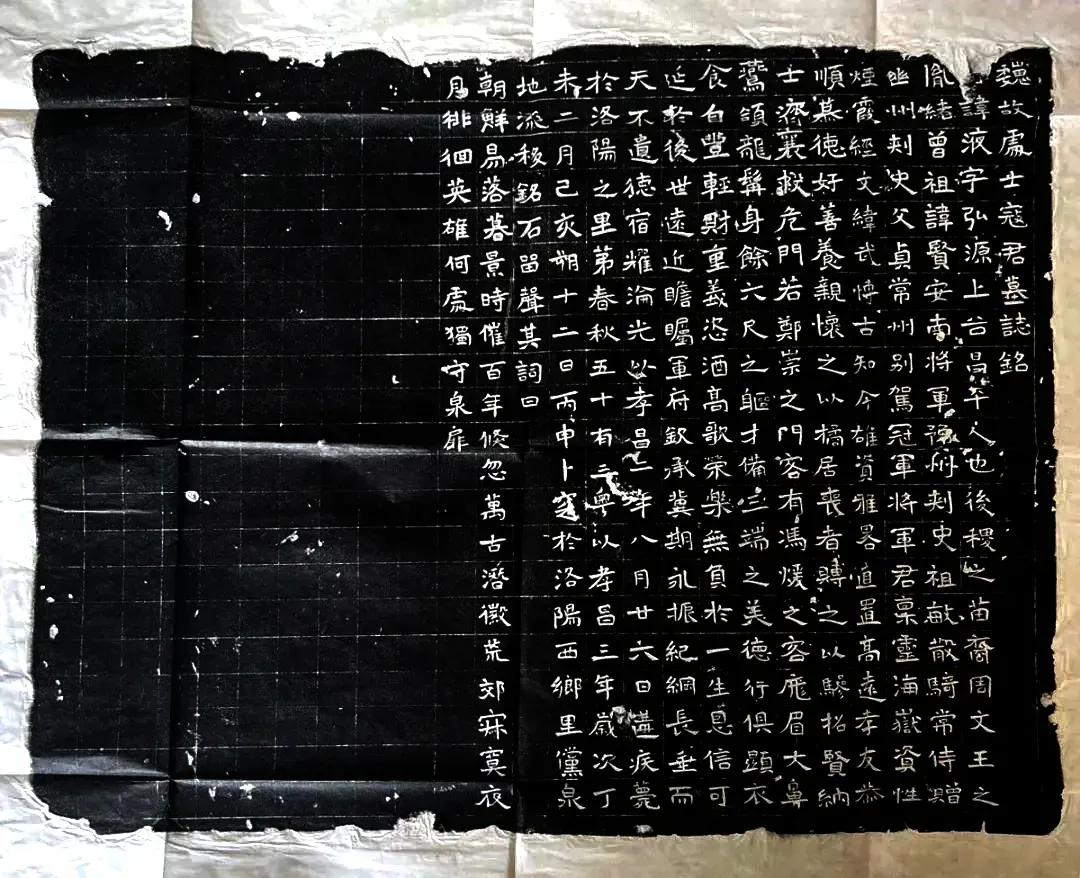 魏故處士寇君墓誌銘
諱液字弘源上谷昌平人也後稷之苗裔周文王之
胤緒曾祖諱賢安南將軍豫州刺史祖敏散騎常侍贈
幽州刺史父貞常州別駕冠軍將軍君稟靈海嶽資性
煙霞經文緯武博古知今雄資雅畧值置高遠孝友恭
順慕德好善養親懷之以橘居喪者賻之以驂招賢納
士濟衰救危門若鄭崇之門客有馮煖之客庬眉大鼻
鷰頷龍髯身餘六尺之軀才備三端之美德行俱顯衣
食自豐輕財重義恣酒高歌榮樂無負於一生恩信可
延於後世遠近瞻矚軍府欽承冀期永振紀綱長垂而
天不遺德宿耀淪光以孝昌二年八月廿六日遘疾薨
於洛陽之里第春秋五十有三粵以孝昌三年歲次丁
未二月己亥朔十二日丙申卜窆於洛陽西鄉里儻泉
地流移銘石留聲其詞曰
朝鮮易落暮景時催百年倏忽萬古潛徽荒郊寂寞夜
月徘徊英雄何處獨守泉扉